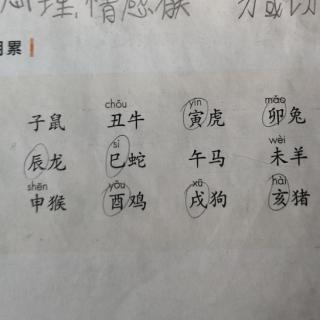 心理,情感

月累
chǒu yín mǎo
子鼠 丑牛 寅虎 卯兔
sì wèi
辰龙 巳蛇 午马 未羊
shēn yǒu xū hài
申猴 酉鸡 戌狗 亥猪